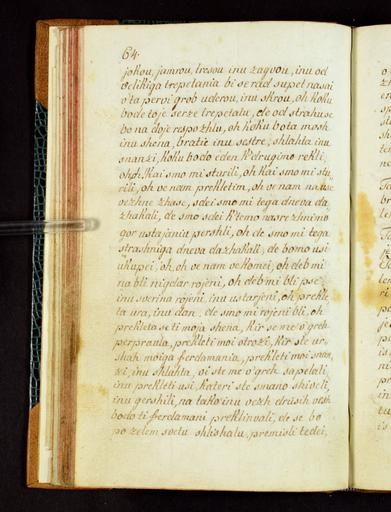 64.
jokou, jamrou, tresou inu zagvou, inu od
velikiga trepetania bi se rad supet nasai
v'ta pervi grob uderou, inu skrou, oh koku
bode toje serze trepetalu, de od strahu se
bo na doje respozhlu, oh koku bota mosh
inu shena, bratie inu sestre, shlahta inu
snanzi, koku bodo eden k'drugimo rekli,
oh, Kai smo mi sturili, oh kai smo mi stu
rili, oh ve nam prekletim, oh ve nam na use
vezhne zhase, sdei smo mi tega dneva da
zhakali, de smo sdei k'temo nasrezhnimo
gor ustajaniu pershli, oh de smo mi tega
strashniga dneva dazhakali, de bomo usi
ukupei, oh, oh ve nam vekomei, oh deb mi
na bli nigdar rojeni, oh deb mi bli pse
inu sverina rojeni inu ustarjeni, oh prekle
ta ura, inu dan, de smo mi rojeni bli, oh
prekleta se ti moja shena, kir se me v'greh
perpraula, prekleti moi otrozi, kir ste ur
shah moiga ferdamania, prekleti moi snan
zi, inu shlahta, vi ste me v'greh sapelali,
inu prekleti usi, kateri ste smano shiveli,
inu gershili, na tako inu vezh drusih vish
bodo ti ferdamani preklinvali, de se bo
po zelem svetu shlishalu, premisli tedei,